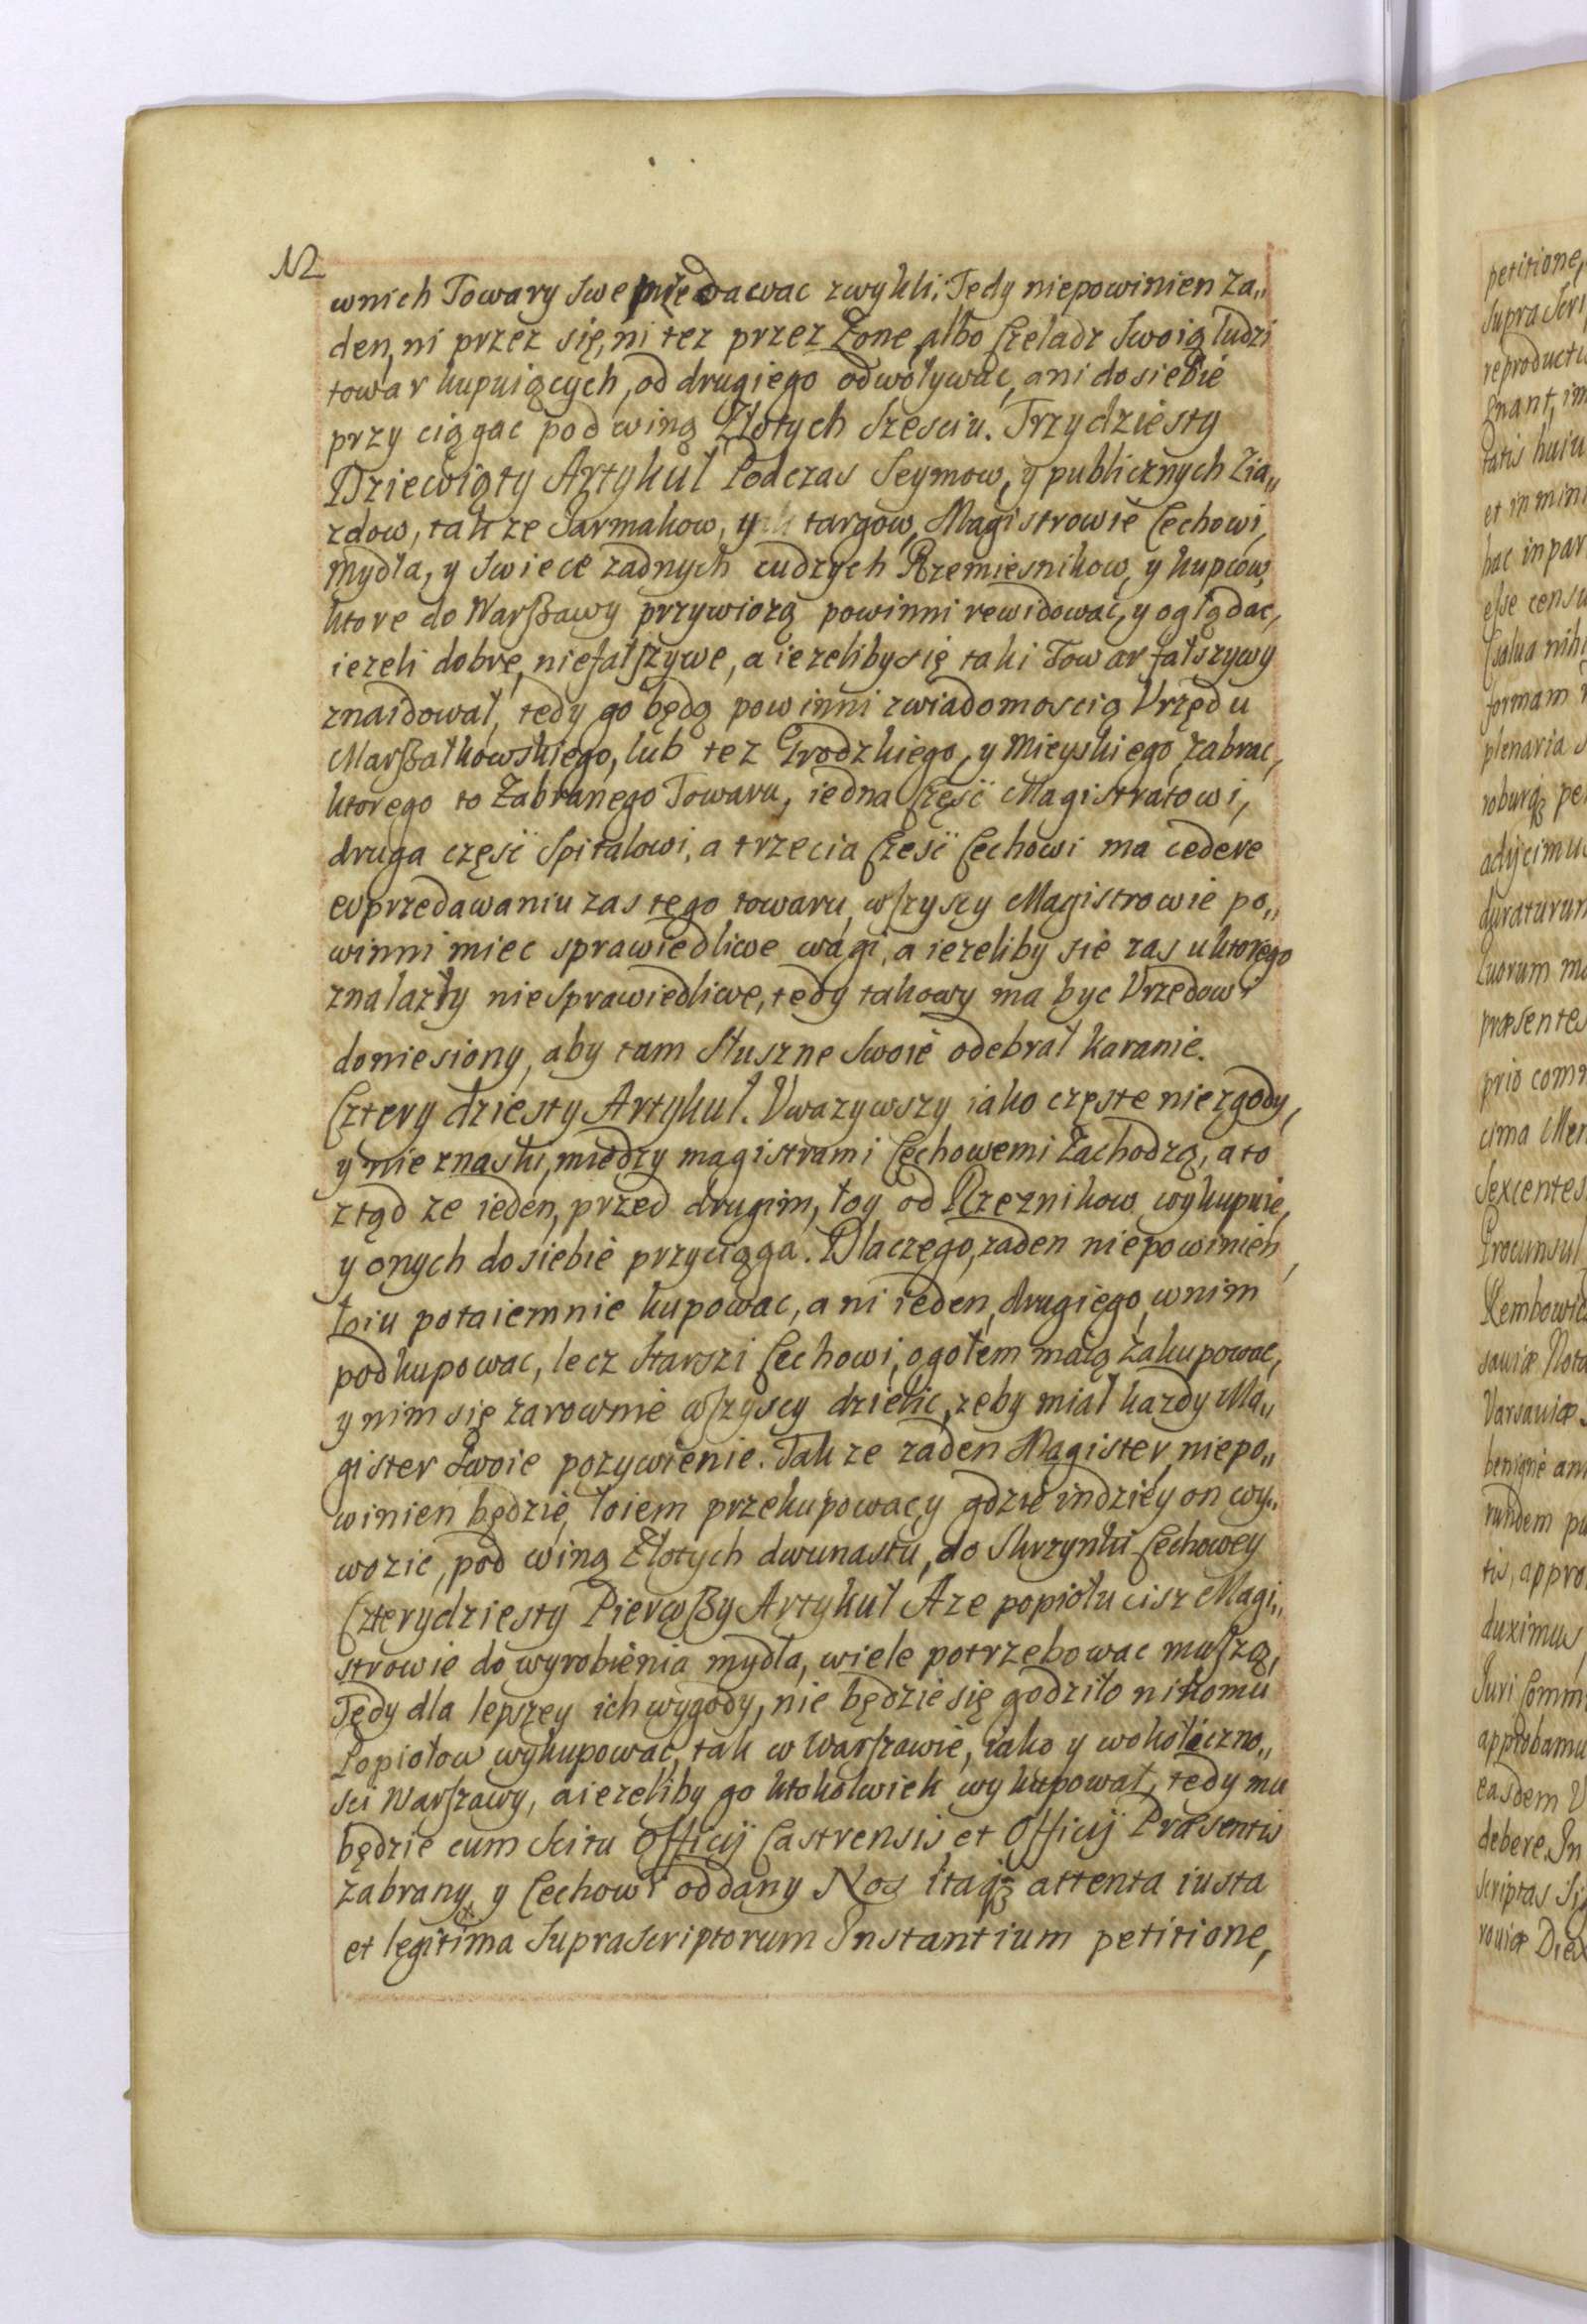 12
wnich Towary swe przedawac zwykli; Tedy niepowinien za„
den, ni przez się, ni tez przez Zone, albo Czeladz swoią ludzi
towar kupuiących, od drugiego odwoływac, ani do siebie
przy ciągac pod winą Złotych Szesciu. Trzydziesty
Dziewiąty Artykuł Podczas Seymow, y publicznych Zia„
zdow, tak ze Jarmakow, y targow, Magistrowie Cechowi,
Mydła, y swiece zadnych cudzych Rzemiesnikow, y kupcow,
ktore do Warßawy przywiozą powinni rewidowac, y oglądac,
iezeli dobre, niefałszywe, a iezelibysię taki Towar fałszywy
znaidował, tedy go będą powinni zwiadomoscią Vrzędu
Marßałkowskiego, lub tez Grodzkiego, y Mieyskiego zabrac,
ktorego to Zabranego Towaru, iedna Częsć Magistratowi,
druga częsć Spitalowi, a trzecia Czesć Cechowi ma cedere
wprzedawaniu zas tego towaru, wszyscy Magistrowie po„
winni miec sprawiedliwe wagi, a iezeliby sie zas u ktorego
znalazły niesprawiedliwe, tedy takowy ma byc Vrzedowi
doniesiony, aby tam Słuszne swoie odebrał karanie.
Cztery dziesty Artykuł. Vwazywszy iako częste niezgody,
y nie znaski, miedzy magistrami Cechowemi Zachodzą, a to
ztąd ze ieden, przed drugim, łoy od Rzeznikow wykupuie,
y onych do siebie przyciąga. Dlaczego, zaden niepowinien,
łoiu potaiemnie kupowac, ani ieden, drugiego, wnim
podkupowac, lecz Starszi Cechowi, ogołem maią zakupowac,
y nim się zarownie wszyscy dzielic, zeby miał kazdy Ma„
gister swoie pozywienie. Tak ze zaden Magister, niepo„
winien będzie, łoiem przekupowac, y gdzie indziey on wy„
wozic, pod winą Złotych dwunastu, do Skrzynki Cechowey
Czterydziesty Pierwßy Artykuł A ze popiołu cisz Magi„
strowie do wyrobienia mydła, wiele potrzebowac muszą,
Tędy dla lepszey ich wygody, nie będzie się godziło nikomu
Popiołow wykupowac, tak w Warszawie, iako y wokoliczno„
sci Warszawy, a iezeliby go ktokolwiek wykupował, tedy mu
będzie cum scitu Officÿ Castrensis, et Officÿ Præsentis
zabrany y Cechowi oddany Nos itaq attenta iusta
et legitima Suprascriptorum Instantium petitione,
petitione,
tatis huiu
et in mini
hac in par
esse censu
salua nihi
formam
plenaria
adijcimus
præsentes
Sexcentes
Proconsul
Varsauiæ
duximus
debere. In